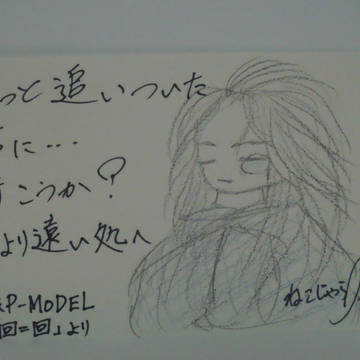 っと追いついた
に...
こうか?
より遠い処へ
P-MODEL
回=回」より
ねこじゃらし